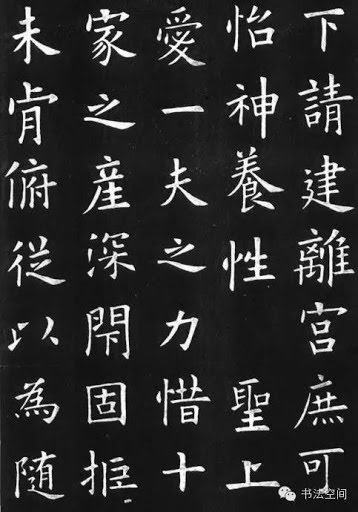 下請建離宮庶可
怡神養性 聖上
愛一夫之力惜十
家之產深閇固拒
未肯俯從以為随
书法空间